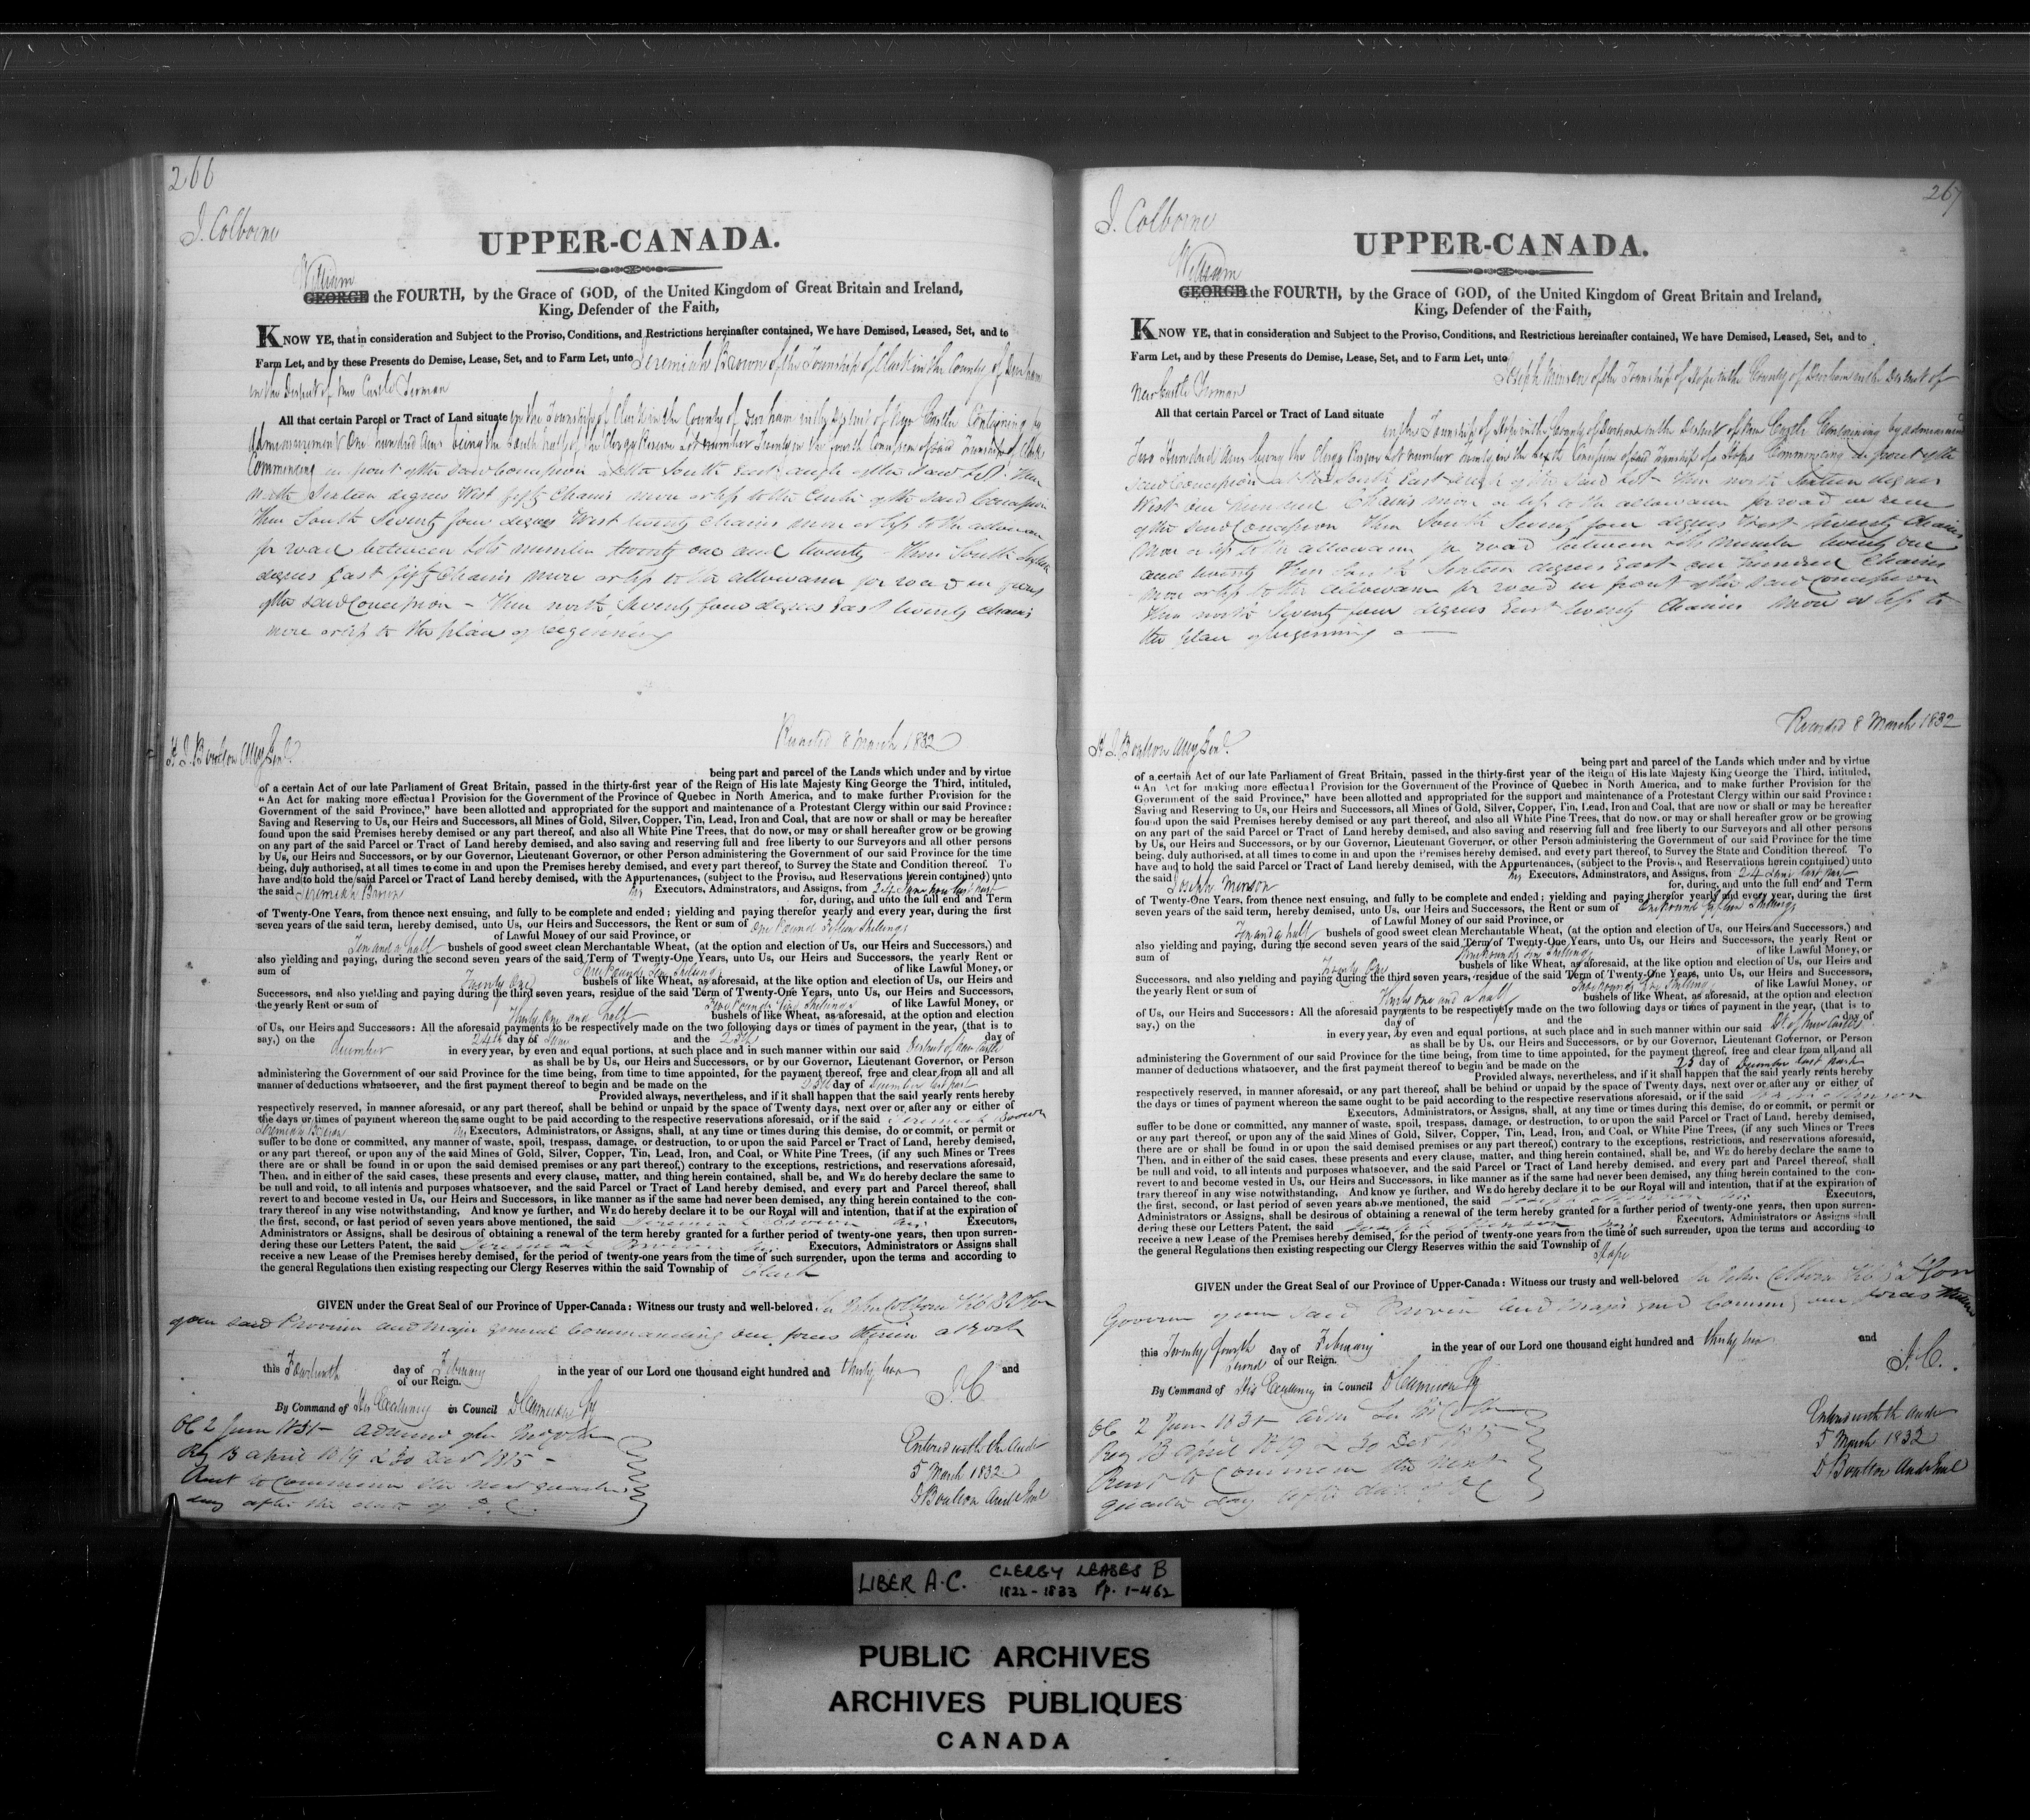 266
J. Colborne
UPPER-CANADA.
William
GEORGE the FOURTH, by the Grace of GOD, of the United Kingdom of Great Britain and Ireland,
King, Defender of the Faith,
KNOW YE, that in consideration and Subject to the Proviso, Conditions, and Restrictions hereinafter contained, We have Demised, Leased, Set, and to
Farm Let, and by these Presents do Demise, Lease, Set, and to Farm Let, unto Jeremiah Brown of the Township of Clark in the County of Durham
in the District of New Castle Yeoman
All that certain Parcel or Tract of Land situate in the Township of Clark in the County of Durham in the District of New Castle Containing by
Admeasurement One hundred Acres being the South half of the Clergy Reserve Lot number Twenty in the fourth Concession of said Township of Clark
Commencing in front of the said Concession at the South East angle of the said Lot. Then
North Sixteen degrees West fifty Chains more or less to the Centre of the said Concession
Then South Seventy four degrees West twenty Chains more or less to the allowance
for road between Lots number twenty one and twenty - Then South Sixteen
degrees East fifty Chains more or less to the allowance for road in front
of the said Concession - Then north Seventy four degrees East twenty chains
more or less to the place of beginning
Recorded 8 March 1832
H J. Boulton Atty Genl.
being part and parcel of the Lands which under and by virtue
of a certain Act of our late Parliament of Great Britain, passed in the thirty-first year of the Reign of His late Majesty King George the Third, intituled,
“An Act for making more effectual Provision for the Government of the Province of Quebec in North America, and to make further Provision for the
Government of the said Province,” have been allotted and appropriated for the support and maintenance of a Protestant Clergy within our said Province:
Saving and Reserving to Us, our Heirs and Successors, all Mines of Gold, Silver, Copper, Tin, Lead, Iron and Coal, that are now or shall or may be hereafter
found upon the said Premises hereby demised or any part thereof, and also all White Pine Trees, that do now, or may or shall hereafter grow or be growing
on any part of the said Parcel or Tract of Land hereby demised, and also saving and reserving full and free liberty to our Surveyors and all other persons
by Us, our Heirs and Successors, or by our Governor, Lieutenant Governor, or other Person administering the Government of our said Province for the time
being, duly authorised, at all times to come in and upon the Premises hereby demised, and every part thereof, to Survey the State and Condition thereof. To
have and to hold the said Parcel or Tract of Land hereby demised, with the Appurtenances, (subject to the Proviso, and Reservations herein contained) unto
the said Jeremiah Brown his Executors, Adminstrators, and Assigns, from 24 June now last past
for, during, and unto the full end and Term
of Twenty-One Years, from thence next ensuing, and fully to be complete and ended; yielding and paying therefor yearly and every year, during the first
seven years of the said term, hereby demised, unto Us, our Heirs and Successors, the Rent or sum of One Pound Fifteen Shillings
of Lawful Money of our said Province, or
Ten and a half bushels of good sweet clean Merchantable Wheat, (at the option and election of Us, our Heirs and Successors,) and
also yielding and paying, during the second seven years of the said Term of Twenty-One Years, unto Us, our Heirs and Successors, the yearly Rent or
sum of Three Pounds Ten Shillings of like Lawful Money, or
Twenty One bushels of like Wheat, as aforesaid, at the like option and election of Us, our Heirs and
Successors, and also yielding and paying during the third seven years, residue of the said Term of Twenty-One Years, unto Us, our Heirs and Successors,
the yearly Rent or sum of Five Pounds Five Shillings of like Lawful Money, or
Thirty One and half bushels of like Wheat, as aforesaid, at the option and election
of Us, our Heirs and Successors: All the aforesaid payments to be respectively made on the two following days or times of payment in the year, (that is to
say,) on the 24th day of June and the 25th day of
December in every year, by even and equal portions, at such place and in such manner within our said District of New Castle
as shall be by Us, our Heirs and Successors, or by our Governor, Lieutenant Governor, or Person
administering the Government of our said Province for the time being, from time to time appointed, for the payment thereof, free and clear from all and all
manner of deductions whatsoever, and the first payment thereof to begin and be made on the 25th day of December last past
Provided always, nevertheless, and if it shall happen that the said yearly rents hereby
respectively reserved, in manner aforesaid, or any part thereof, shall be behind or unpaid by the space of Twenty days, next over or after any or either of
the days or times of payment whereon the same ought to be paid according to the respective reservations aforesaid, or if the said Jeremiah Brown
Jeremiah Brown his Executors, Administrators, or Assigns, shall, at any time or times during this demise, do or commit, or permit or
suffer to be done or committed, any manner of waste, spoil, trespass, damage, or destruction, to or upon the said Parcel or Tract of Land, hereby demised,
or any part thereof, or upon any of the said Mines of Gold, Silver, Copper, Tin, Lead, Iron, and Coal, or White Pine Trees, (if any such Mines or Trees
there are or shall be found in or upon the said demised premises or any part thereof,) contrary to the exceptions, restrictions, and reservations aforesaid,
Then, and in either of the said cases, these presents and every clause, matter, and thing herein contained, shall be, and WE do hereby declare the same to
be null and void, to all intents and purposes whatsoever, and the said Parcel or Tract of Land hereby demised, and every part and Parcel thereof, shall
revert to and become vested in Us, our Heirs and Successors, in like manner as if the same had never been demised, any thing herein contained to the con-
trary thereof in any wise notwithstanding, And know ye further, and WE do hereby declare it to be our Royal will and intention, that if at the expiration of
the first, second, or last period of seven years above mentioned, the said Jeremiah Brown his Executors,
Administrators or Assigns, shall be desirous of obtaining a renewal of the term hereby granted for a further period of twenty-one years, then upon surren-
dering these our Letters Patent, the said Jeremiah Brown his Executors, Administrators or Assigns shall
receive a new Lease of the Premises hereby demised, for the period of twenty-one years from the time of such surrender, upon the terms and according to
the general Regulations then existing respecting our Clergy Reserves within the said Township of Clark
GIVEN under the Great Seal of our Province of Upper-Canada: Witness our trusty and well-beloved Sir John Colborne KCB Lt Gov
of our said Province and Major General Commanding our forces therein at York
this Fourteenth day of February in the year of our Lord one thousand eight hundred and thirty two and
of our Reign. J. C.
By Command of His Excellency in Council D Cameron Sy
OC 2 June 1831 -
Reg 13 April 1819 & 30 Dec 1815 -
to Commence the next quarter
day after the date of O.C.
Entered with the Audr
5 March 1832
D Boulton Aud Genl
267
J. Colborne
UPPER-CANADA.
William
GEORGE the FOURTH, by the Grace of GOD, of the United Kingdom of Great Britain and Ireland,
King, Defender of the Faith,
KNOW YE, that in consideration and Subject to the Proviso, Conditions, and Restrictions hereinafter contained, We have Demised, Leased, Set, and to
Farm Let, and by these Presents do Demise, Lease, Set, and to Farm Let, unto Joseph Minson of the Township of Hope in the County of Durham in the District of
New Castle Yeoman
All that certain Parcel or Tract of Land situate in the Township of Hope in the County of Durham in the District of New Castle Containing by admeasurement
Two Hundred Acres being the Clergy Reserve Lot number twenty in the Sixth Concession of said Township of Hope Commencing in front of the
said Concession at the South East angle of the said Lot - Then north Sixteen degrees
West one hundred Chains more or less to the allowance for road in rear
of the said Concession Then South Seventy four degrees West twenty Chains
more or less to the allowance for road between lots number twenty one
and twenty Then South Sixteen degrees East one hundred Chains
more or less to the allowance for road in front of the said Concession
Then north Seventy four degrees East twenty Chains more or less to
the place of beginning
Recorded 8 March 1832
H J. Boulton Atty Genl.
being part and parcel of the Lands which under and by virtue
of a certain Act of our late Parliament of Great Britain, passed in the thirty-first year of the Reign of His late Majesty King George the Third, intituled,
“An Act for making more effectual Provision for the Government of the Province of Quebec in North America, and to make further Provision for the
Government of the said Province,” have been allotted and appropriated for the support and maintenance of a Protestant Clergy within our said Province:
Saving and Reserving to Us, our Heirs and Successors, all Mines of Gold, Silver, Copper, Tin, Lead, Iron and Coal, that are now or shall or may be hereafter
found upon the said Premises hereby demised or any part thereof, and also all White Pine Trees, that do now, or may or shall hereafter grow or be growing
on any part of the said Parcel or Tract of Land hereby demised, and also saving and reserving full and free liberty to our Surveyors and all other persons
by Us, our Heirs and Successors, or by our Governor, Lieutenant Governor, or other Person administering the Government of our said Province for the time
being, duly authorised, at all times to come in and upon the Premises hereby demised, and every part thereof, to Survey the State and Condition thereof. To
have and to hold the said Parcel or Tract of Land hereby demised, with the Appurtenances, (subject to the Proviso, and Reservations herein contained) unto
the said Joseph Minson his Executors, Administrators, and Assigns, from 24 June last past
for, during, and unto the full end and Term
of Twenty-One Years, from thence next ensuing, and fully to be complete and ended; yielding and paying therefor yearly and every year, during the first
seven years of the said term, hereby demised, unto Us, our Heirs and Successors, the Rent or sum of One Pound fifteen Shillings
of Lawful Money of our said Province, or
Ten and a half bushels of good sweet clean Merchantable Wheat, (at the option and election of Us, our Heirs and Successors,) and
also yielding and paying, during the second seven years of the said Term of Twenty-One Years, unto Us, our Heirs and Successors, the yearly Rent or
sum of Three Pounds Ten Shillings of like Lawful Money, or
Twenty One bushels of like Wheat, as aforesaid, at the like option and election of Us, our Heirs and
Successors, and also yielding and paying during the third seven years, residue of the said Term of Twenty-One Years, unto Us, our Heirs and Successors,
the yearly Rent or sum of Five Pounds Five Shillings of like Lawful Money, or
Thirty One and a half bushels of like Wheat, as aforesaid, at the option and election
of Us, our Heirs and Successors: All the aforesaid payments to be respectively made on the two following days or times of payment in the year, (that is to
say,) on the day of and the day of
in every year, by even and equal portions, at such place and in such manner within our said Dt of New Castle
as shall be by Us, our Heirs and Successors, or by our Governor, Lieutenant Governor, or Person
administering the Government of our said Province for the time being, from time to time appointed, for the payment thereof, free and clear from all and all
manner of deductions whatsoever, and the first payment thereof to begin and be made on the 25 day of December last past
Provided always, nevertheless, and if it shall happen that the said yearly rents hereby
respectively reserved, in manner aforesaid, or any part thereof, shall be behind or unpaid by the space of Twenty days, next over or after any or either of
the days or times of payment whereon the same ought to be paid according to the respective reservations aforesaid, or if the said Minson
Executors, Administrators, or Assigns, shall, at any time or times during this demise, do or commit, or permit or
suffer to be done or committed, any manner of waste, spoil, trespass, damage, or destruction, to or upon the said Parcel or Tract of Land, hereby demised,
or any part thereof, or upon any of the said Mines of Gold, Silver, Copper, Tin, Lead, Iron, and Coal, or White Pine Trees, (if any such Mines or Trees
there are or shall be found in or upon the said demised premises or any part thereof,) contrary to the exceptions, restrictions, and reservations aforesaid,
Then, and in either of the said cases, these presents and every clause, matter, and thing herein contained, shall be, and WE do hereby declare the same to
be null and void, to all intents and purposes whatsoever, and the said Parcel or Tract of Land hereby demised, and every part and Parcel thereof, shall
revert to and become vested in Us, our Heirs and Successors, in like manner as if the same had never been demised, any thing herein contained to the con-
trary thereof in any wise notwithstanding. And know ye further, and WE do hereby declare it to be our Royal will and intention, that if at the expiration of
the first, second, or last period of seven years above mentioned, the said Joseph Minson his Executors,
Administrators or Assigns, shall be desirous of obtaining a renewal of the term hereby granted for a further period of twenty-one years, then upon surren-
dering these our Letters Patent, the said Joseph Minson his Executors, Administrators or Assigns shall
receive a new Lease of the Premises hereby demised, for the period of twenty-one years from the time of such surrender, upon the terms and according to
the general Regulations then existing respecting our Clergy Reserves within the said Township of Hope
GIVEN under the Great Seal of our Province of Upper-Canada: Witness our trusty and well-beloved Sir John Colborne KCB Lt Gov
Governor of our said Province and Major Genl Commg our forces therein
this Twenty fourth day of February in the year of our Lord one thousand eight hundred and thirty two and
Second of our Reign. J. C.
By Command of His Excellency in Council D Cameron Sy
OC 2 June 1831
Reg 13 April 1819 & 30 Dec 1815
Rent to Commence the next
quarter day after date of O C
Entered with the Audr
5 March 1832
D Boulton Aud Genl
LIBER A.C. CLERGY LEASES B
1822-1833 Pp. 1-462
PUBLIC ARCHIVES
ARCHIVES PUBLIQUES
CANADA